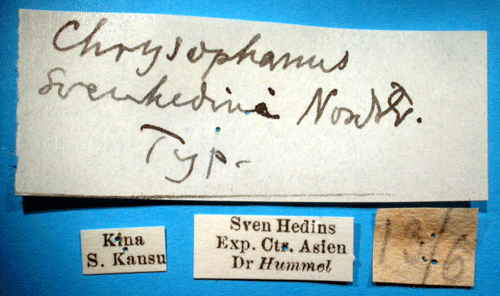 Chrysophanus
svenhedini Nordstr.
Typ.
Kina
S. Kansu
Sven Hedins
Exp. Ctr. Asien
Dr Hummel
13/6